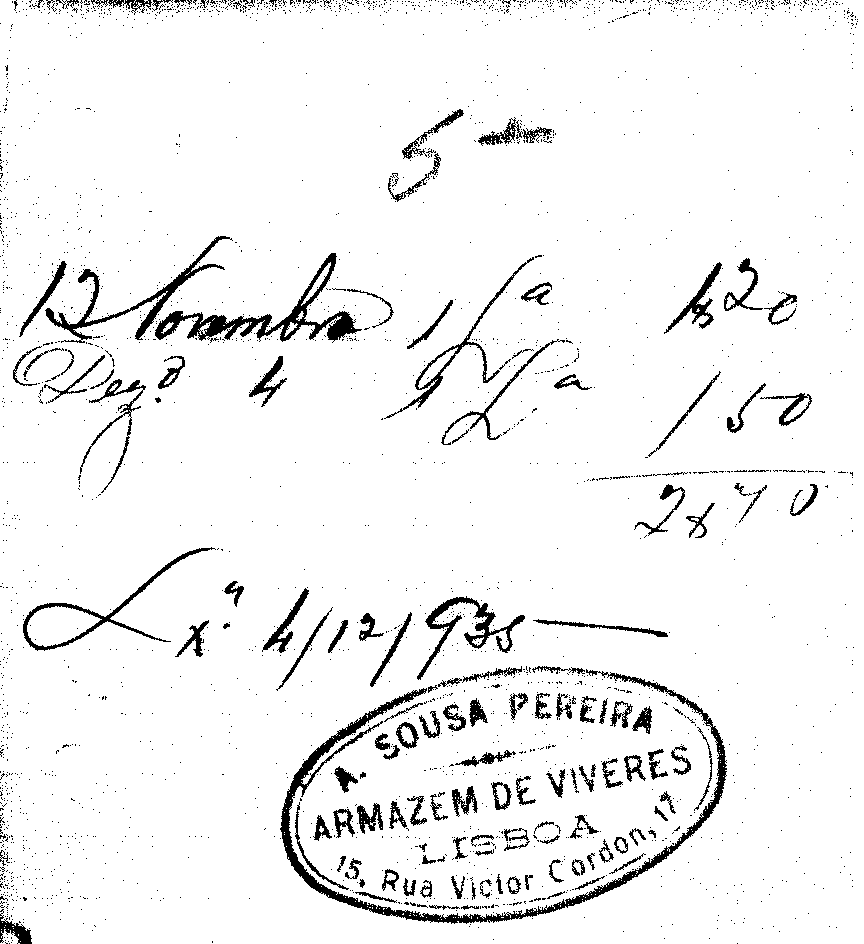 5 —
12 Novembro 1 La 1$20
Dez.o 4 1 La 150
2$70
Lx.a 4/12/935
A. SOUSA PEREIRA
ARMAZEM DE VIVERES
LISBOA
15, Rua Victor Cordon, 17